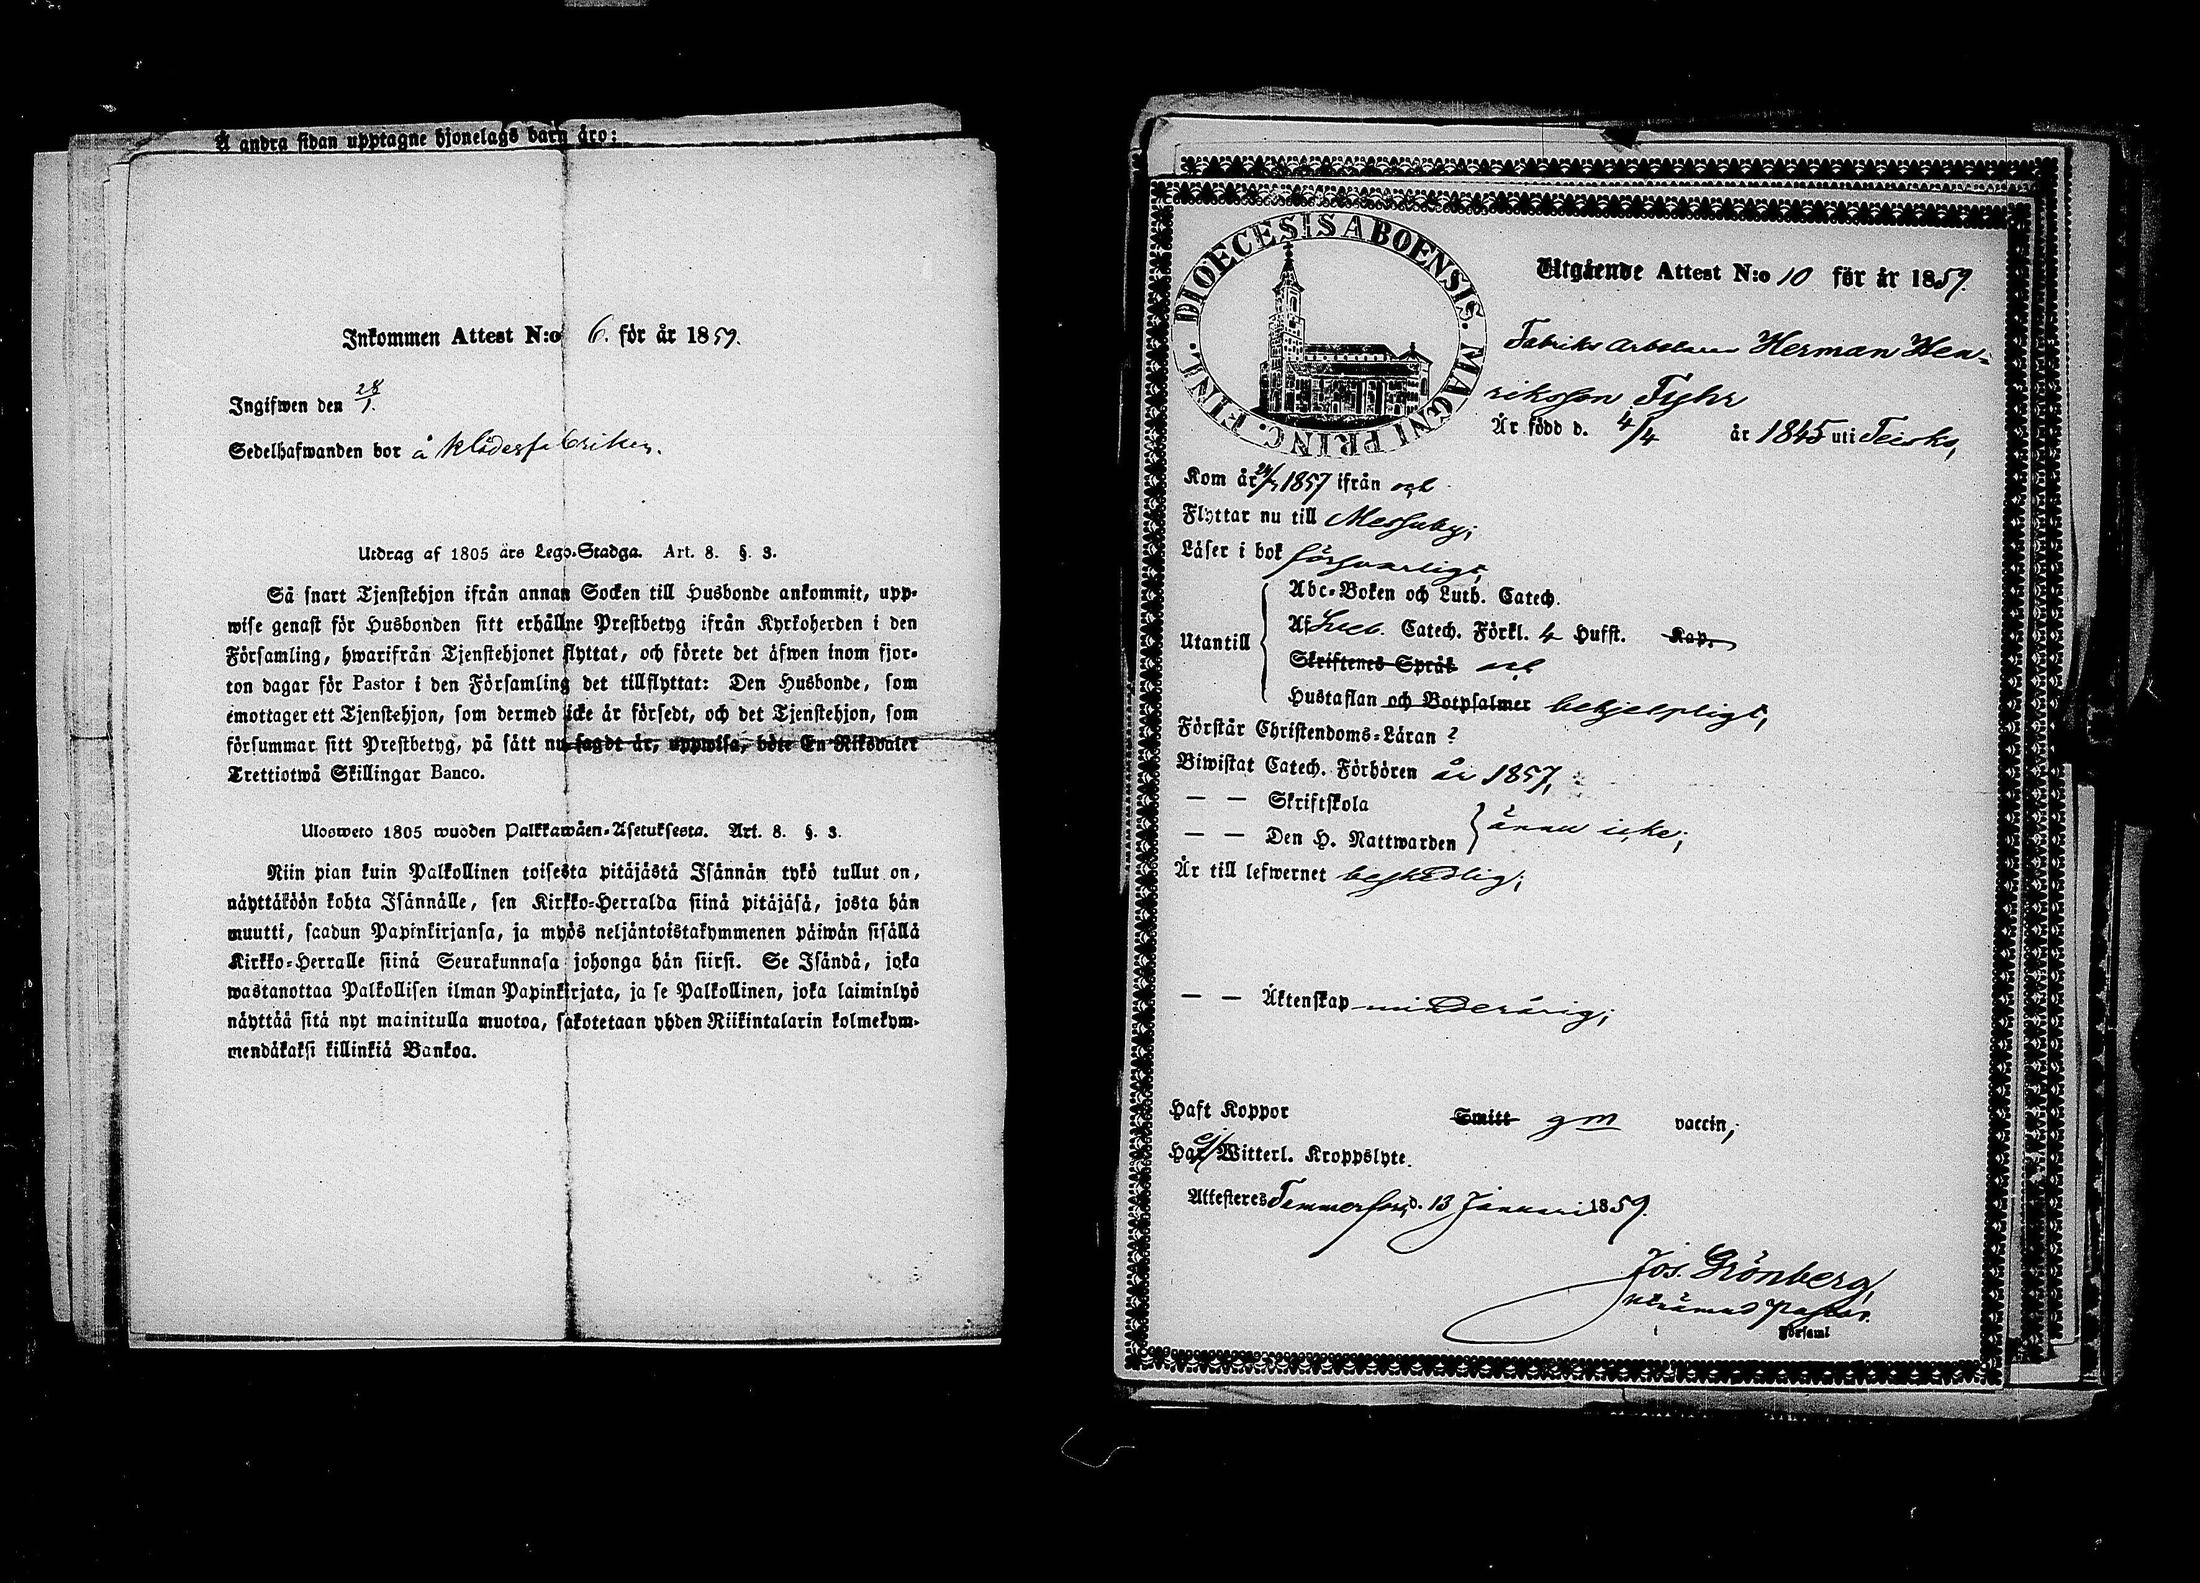 Å andra sidan upptagne hjonelags barn äro:
Inkommen Attest N:o 6. för år 1859.
Ingifwen den 28/1.
Sedelhafwanden bor å klädesfabriken.
Utdrag af 1805 års Lego-Stadga. Art. 8. §. 3.
Så snart Tjenstehjon ifrån annan Socken till Husbonde ankommit, upp-
wise genast för Husbonden sitt erhållne Prestbetyg ifrån Kyrkoherden i den
Församling, hwarifrån Tjenstehjonet flyttat, och förete det äfwen inom fjor-
ton dagar för Pastor i den Församling det tillflyttat: Den Husbonde, som
emottager ett Tjenstehjon, som dermed icke är försedt, och det Tjenstehjon, som
försummar sitt Prestbetyg, på sätt nu sagdt är, uppwisa, böte En Riksdaler
Trettiotwå Skillingar Banco.
Ulosweto 1805 wuoden Palkkawäen-Asetuksesta. Art. 8. §. 3.
Niin pian kuin Palkollinen toisesta pitäjästä Isännän tykö tullut on,
näyttäköön kohta Isännälle, sen Kirkko-Herralda siinä pitäjäsä, josta hän
muutti, saadun Papinkirjansa, ja myös neljäntoistakymmenen päiwän sisällä
Kirkko-Herralle siinä Seurakunnasa johonga hän siirsi. Se Isändä, joka
wastanottaa Palkollisen ilman Papinkirjata, ja se Palkollinen, joka laiminlyö
näyttää sitä nyt mainitulla muotoa, sakotetaan yhden Riikintalarin kolmekym-
mendäkaksi killinkiä Bankoa.
DIOECESIS ABOENSIS. MAGNI PRINC. FINL.
Utgående Attest N:o 10 för år 1859.
Fabriks arbetaren Herman Hen-
riksson Fyhr
Är född d. 4/4 år 1845 uti Teisko,
Kom år 1857 ifrån och
Flyttar nu till Messuby;
Läser i bok försvarligt,
Abc-Boken och Luth. Catech.
Utantill Af Sveb. Catech. Förkl. 4 Hufst. Kap.
Skriftenes Språk och
Hustaflan och Botpsalmer behjelpligt,
Förstår Christendoms-Läran ?
Biwistat Catech. Förhören år 1857,
— — Skriftskola
— — Den H. Nattwarden ännu icke;
Är till lefwernet beskedlig;
— — Äktenskap minderårig;
Haft Koppor Smitt gm vaccin;
Har ej Witterl. Kroppslyte.
Attesteres Tammerfors, d. 13 Januari 1859.
Jos. Grönberg,
Pastor.
Församl